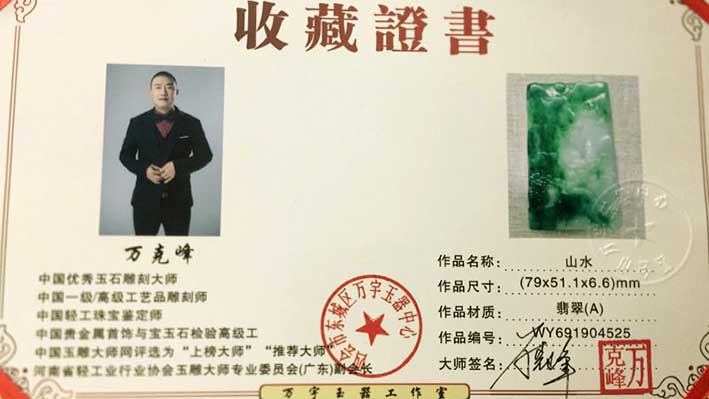 收藏證書
万克峰
中国优秀玉石雕刻大师
中国一级/高级工艺品雕刻师
中国轻工珠宝鉴定师
中国贵金属首饰与宝玉石检验高级工
中国玉雕大师网评选为“上榜大师”“推荐大师”
河南省轻工业行业协会玉雕大师专业委员会(广东)副会长
四会市东城区万宇玉器中心
作品名称: 山水
作品尺寸: (79x51.1x6.6)mm
作品材质: 翡翠(A)
作品编号: WY691904525
大师签名: 万克峰
万克峰
万宇玉器工作室